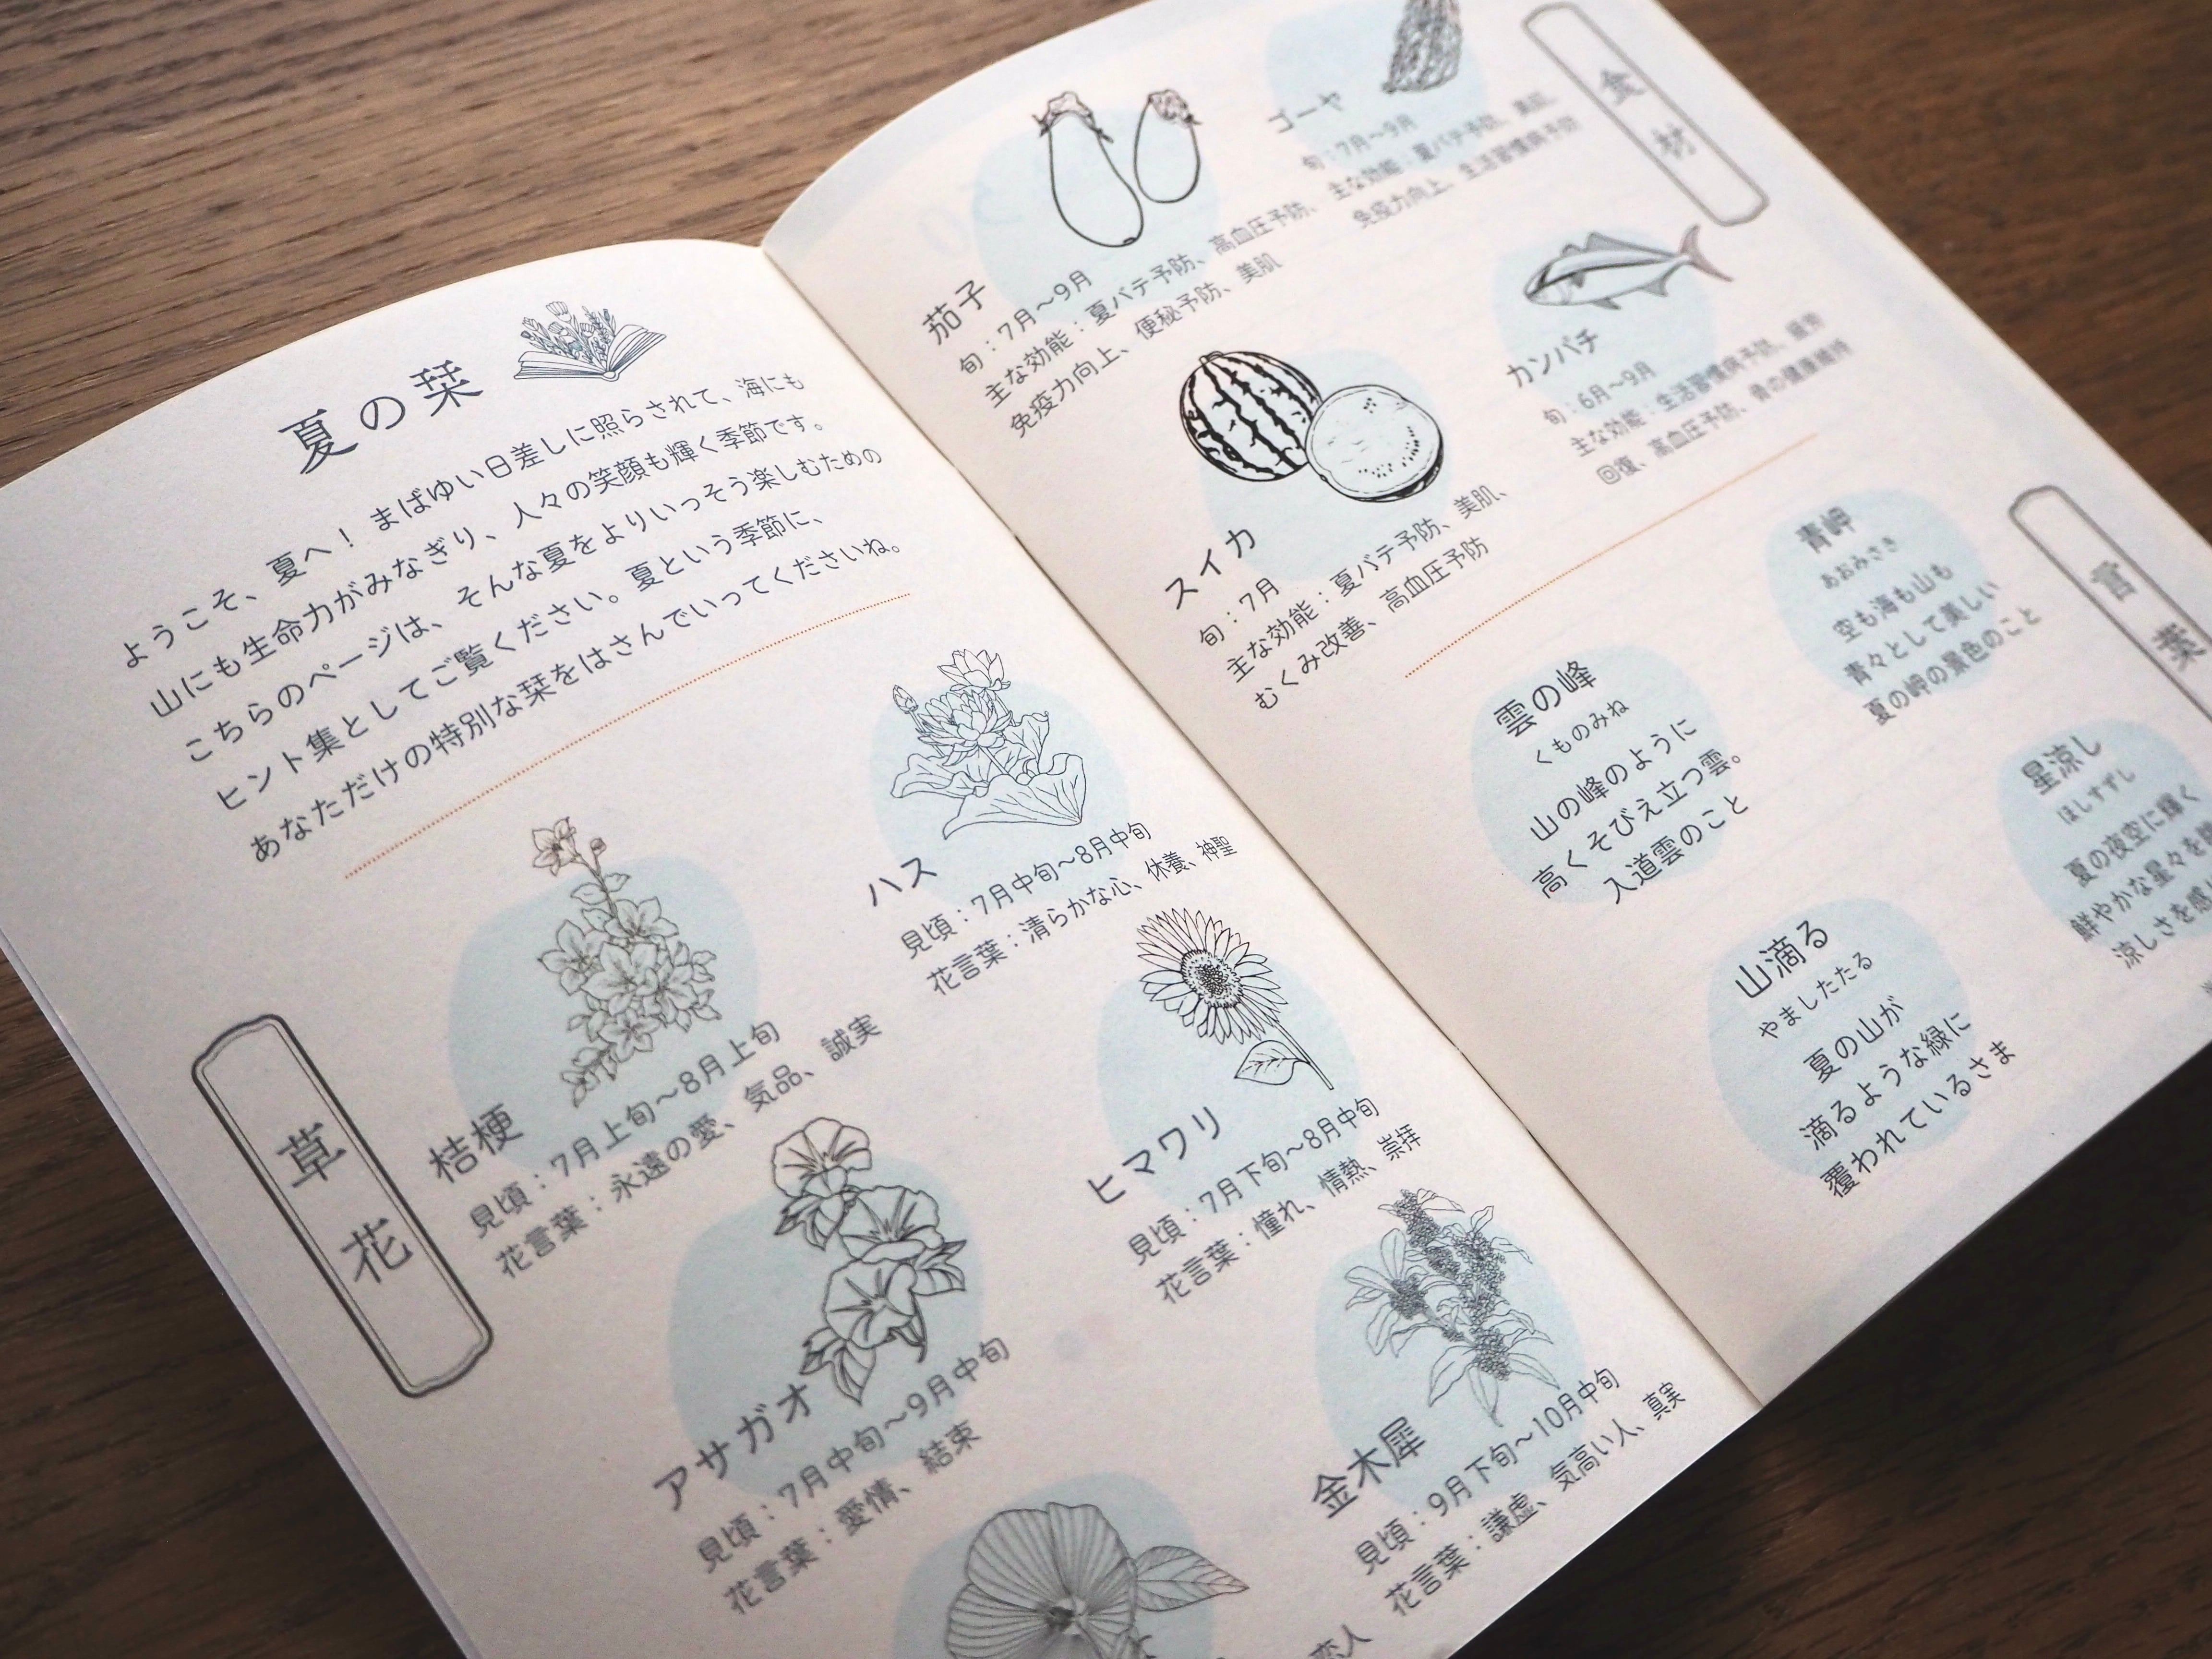 夏の栞
ようこそ、夏へ！ まばゆい日差しに照らされて、海にも
山にも生命力がみなぎり、人々の笑顔も輝く季節です。
こちらのページは、そんな夏をよりいっそう楽しむための
ヒント集としてご覧ください。夏という季節に、
あなただけの特別な栞をはさんでいってくださいね。
草花
桔梗
見頃：7月上旬〜8月上旬
花言葉：永遠の愛、気品、誠実
ハス
見頃：7月中旬〜8月中旬
花言葉：清らかな心、休養、神聖
アサガオ
見頃：7月中旬〜9月中旬
花言葉：愛情、結束
ヒマワリ
見頃：7月下旬〜8月中旬
花言葉：憧れ、情熱、崇拝
金木犀
見頃：9月下旬〜10月中旬
花言葉：謙虚、気高い人、真実
恋人
食材
茄子
旬：7月〜9月
主な効能：夏バテ予防、高血圧予防、
免疫力向上、便秘予防、美肌
ゴーヤ
旬：7月〜9月
主な効能：夏バテ予防、美肌、
免疫力向上、生活習慣病予防
スイカ
旬：7月
主な効能：夏バテ予防、美肌、
むくみ改善、高血圧予防
カンパチ
旬：6月〜9月
主な効能：生活習慣病予防、疲労
回復、高血圧予防、骨の健康維持
言葉
雲の峰
くものみね
山の峰のように
高くそびえ立つ雲。
入道雲のこと
青岬
あおみさき
空も海も山も
青々として美しい
夏の岬の景色のこと
山滴る
やましたたる
夏の山が
滴るような緑に
覆われているさま
星涼し
ほしすずし
夏の夜空に輝く
鮮やかな星々を
涼しさを感